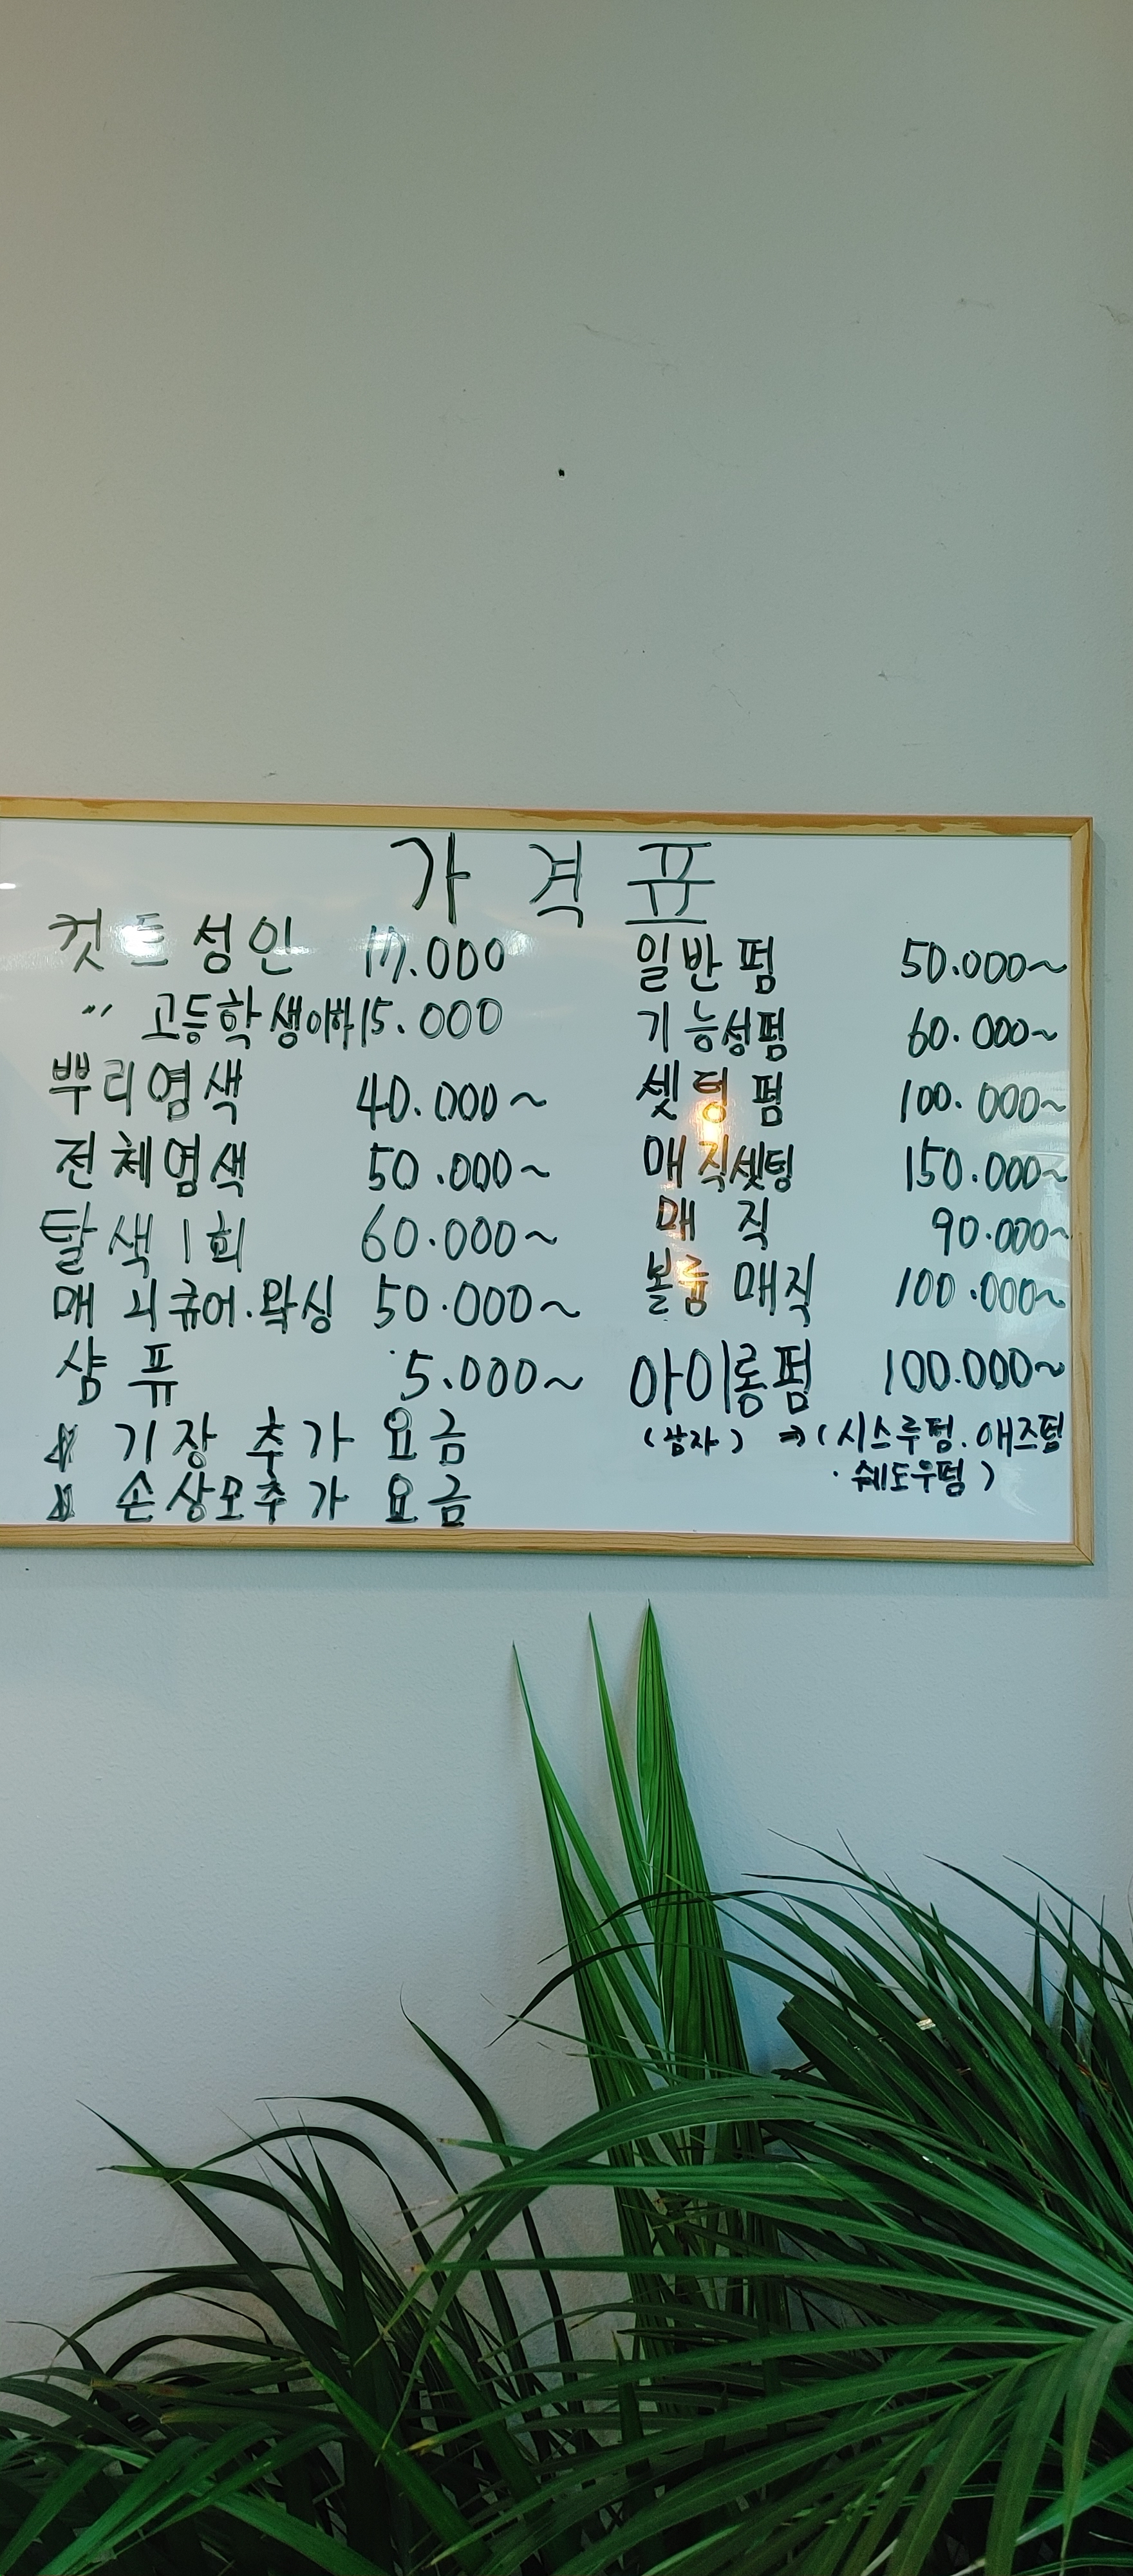 가격표
컷트성인 17.000
〃 고등학생이하 15.000
뿌리염색 40.000~
전체염색 50.000~
탈색1회 60.000~
매니큐어.왁싱 50.000~
샴퓨 5.000~
기장 추가 요금
손상모추가 요금
일반펌 50.000~
기능성펌 60.000~
셋팅펌 100.000~
매직셋팅 150.000~
매직 90.000~
볼륨 매직 100.000~
아이롱펌 100.000~
(남자) ⇒ (시스루펌.애즈펌
·쉐도우펌)